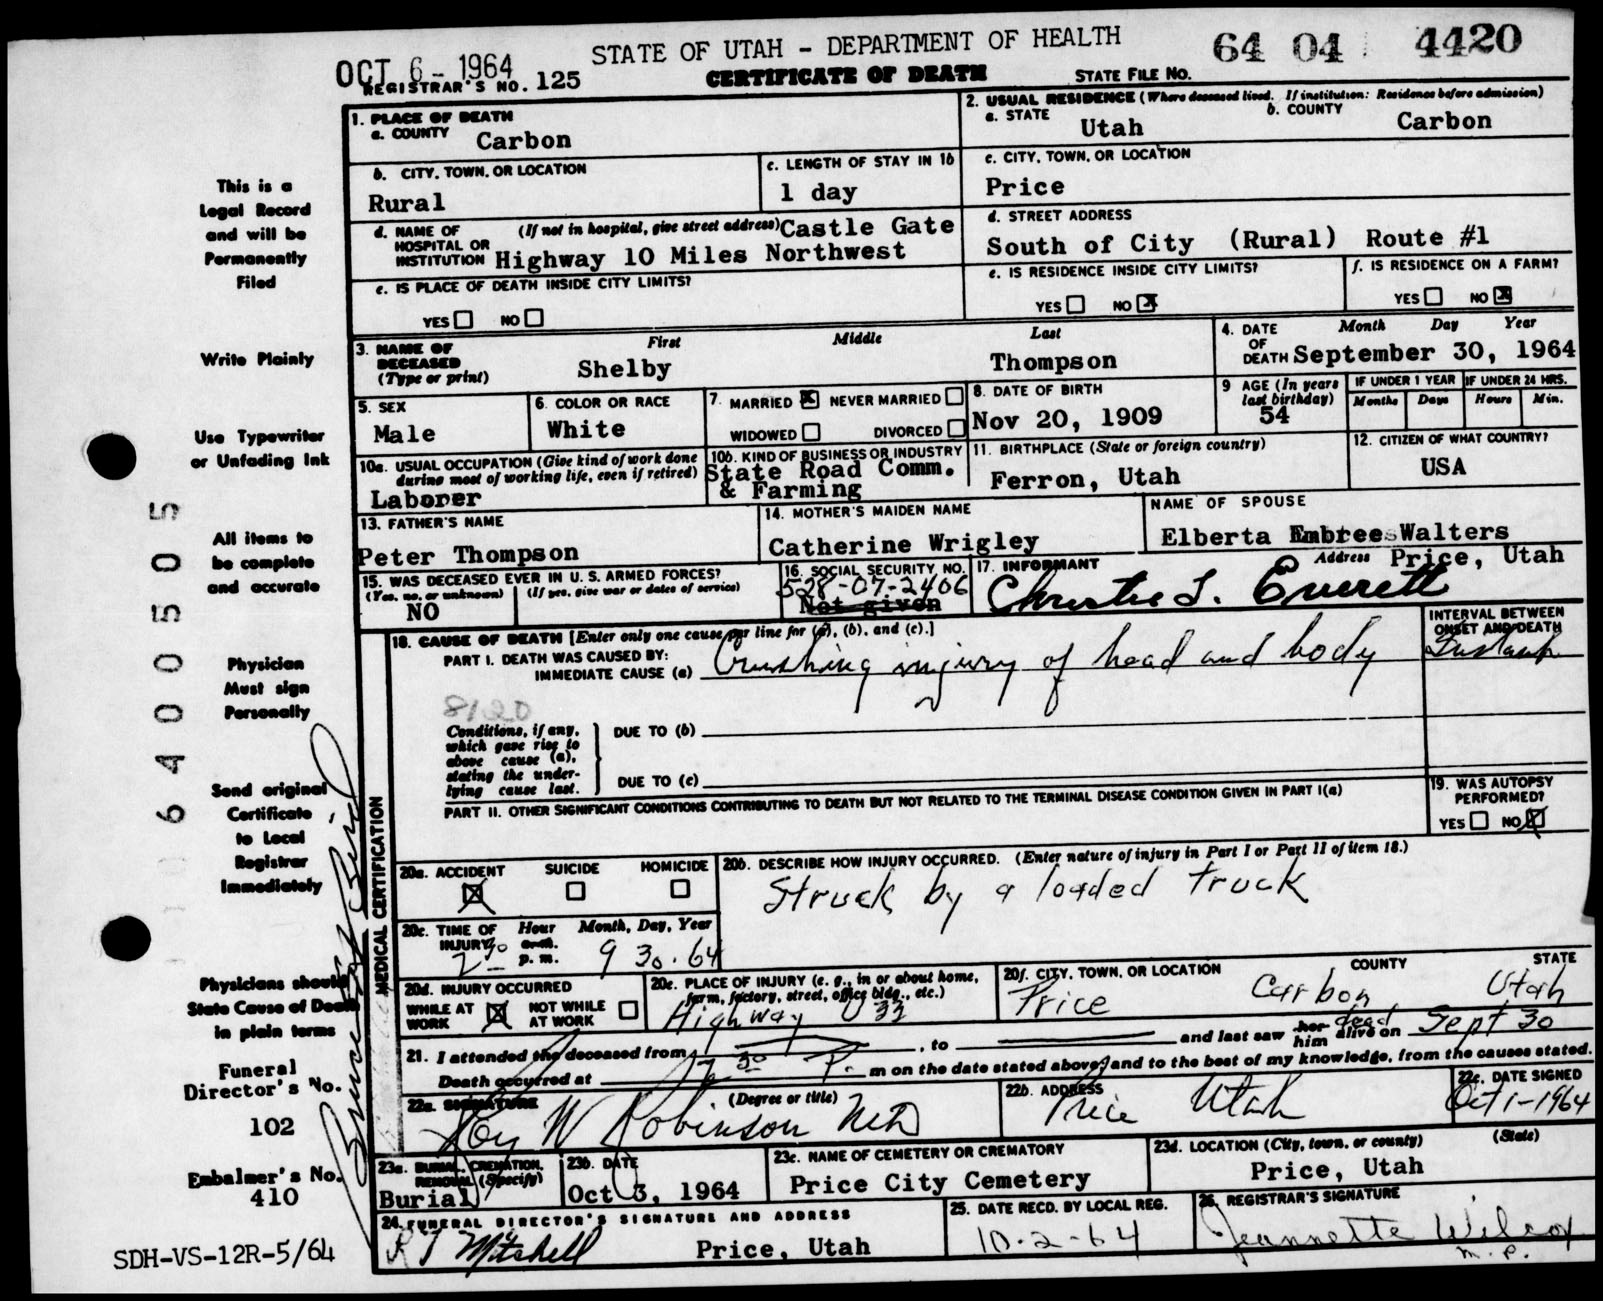 OCT 6 - 1964
STATE OF UTAH - DEPARTMENT OF HEALTH
64 04 4420
REGISTRAR'S NO. 125
CERTIFICATE OF DEATH
STATE FILE NO.
1. PLACE OF DEATH
a. COUNTY Carbon
2. USUAL RESIDENCE (Where deceased lived. If institution: Residence before admission)
a. STATE Utah b. COUNTY Carbon
b. CITY, TOWN, OR LOCATION
Rural
c. LENGTH OF STAY IN 1b
1 day
c. CITY, TOWN, OR LOCATION
Price
d. NAME OF HOSPITAL OR INSTITUTION (If not in hospital, give street address) Castle Gate
Highway 10 Miles Northwest
d. STREET ADDRESS
South of City (Rural) Route #1
e. IS PLACE OF DEATH INSIDE CITY LIMITS?
YES NO
e. IS RESIDENCE INSIDE CITY LIMITS?
YES NO X
f. IS RESIDENCE ON A FARM?
YES NO X
3. NAME OF DECEASED (Type or print)
First Middle Last
Shelby Thompson
4. DATE OF DEATH Month Day Year
September 30, 1964
5. SEX
Male
6. COLOR OR RACE
White
7. MARRIED X NEVER MARRIED
WIDOWED DIVORCED
8. DATE OF BIRTH
Nov 20, 1909
9 AGE (In years last birthday)
54
IF UNDER 1 YEAR
Months Days
IF UNDER 24 HRS.
Hours Min.
10a. USUAL OCCUPATION (Give kind of work done during most of working life, even if retired)
Laborer
10b. KIND OF BUSINESS OR INDUSTRY
State Road Comm.
& Farming
11. BIRTHPLACE (State or foreign country)
Ferron, Utah
12. CITIZEN OF WHAT COUNTRY?
USA
13. FATHER'S NAME
Peter Thompson
14. MOTHER'S MAIDEN NAME
Catherine Wrigley
NAME OF SPOUSE
Elberta Embrees Walters
15. WAS DECEASED EVER IN U. S. ARMED FORCES?
(Yes, no, or unknown) (If yes, give war or dates of service)
NO
16. SOCIAL SECURITY NO.
528-07-2406
Not given
17. INFORMANT Address Price, Utah
Christie L. Everett
18. CAUSE OF DEATH [Enter only one cause per line for (a), (b), and (c).]
INTERVAL BETWEEN ONSET AND DEATH
PART I. DEATH WAS CAUSED BY:
IMMEDIATE CAUSE (a) Crushing injury of head and body
8120
Conditions, if any, which gave rise to above cause (a), stating the underlying cause last.
DUE TO (b)
DUE TO (c)
PART II. OTHER SIGNIFICANT CONDITIONS CONTRIBUTING TO DEATH BUT NOT RELATED TO THE TERMINAL DISEASE CONDITION GIVEN IN PART I(a)
19. WAS AUTOPSY PERFORMED?
YES NO X
MEDICAL CERTIFICATION
20a. ACCIDENT SUICIDE HOMICIDE
X
20b. DESCRIBE HOW INJURY OCCURRED. (Enter nature of injury in Part I or Part II of item 18.)
Struck by a loaded truck
20c. TIME OF INJURY Hour Month, Day, Year
2 30 a.m. p. m. 9 30.64
20d. INJURY OCCURRED
WHILE AT WORK X NOT WHILE AT WORK
20e. PLACE OF INJURY (e. g., in or about home, farm, factory, street, office bldg., etc.)
Highway U 33
20f. CITY, TOWN, OR LOCATION COUNTY STATE
Price Carbon Utah
21. I attended the deceased from , to and last saw her him alive on dead Sept 30
Death occurred at P. m on the date stated above; and to the best of my knowledge, from the causes stated.
22a. SIGNATURE (Degree or title)
Roy W Robinson MD
22b. ADDRESS
Price Utah
22c. DATE SIGNED
Oct 1-1964
23a. BURIAL, CREMATION, REMOVAL (Specify)
Burial
23b. DATE
Oct 3, 1964
23c. NAME OF CEMETERY OR CREMATORY
Price City Cemetery
23d. LOCATION (City, town, or county) (State)
Price, Utah
24. FUNERAL DIRECTOR'S SIGNATURE AND ADDRESS
R J Mitchell Price, Utah
25. DATE RECD. BY LOCAL REG.
10-2-64
26. REGISTRAR'S SIGNATURE
Jeannette Wilcox
m.p.
This is a
Legal Record
and will be
Permanently
Filed
Write Plainly
Use Typewriter
or Unfading Ink
All items to
be complete
and accurate
Physician
Must sign
Personally
Send original
Certificate
to Local
Registrar
Immediately
Physicians should
State Cause of Death
in plain terms
Funeral
Director's No.
102
Embalmer's No.
410
SDH-VS-12R-5/64
640050505